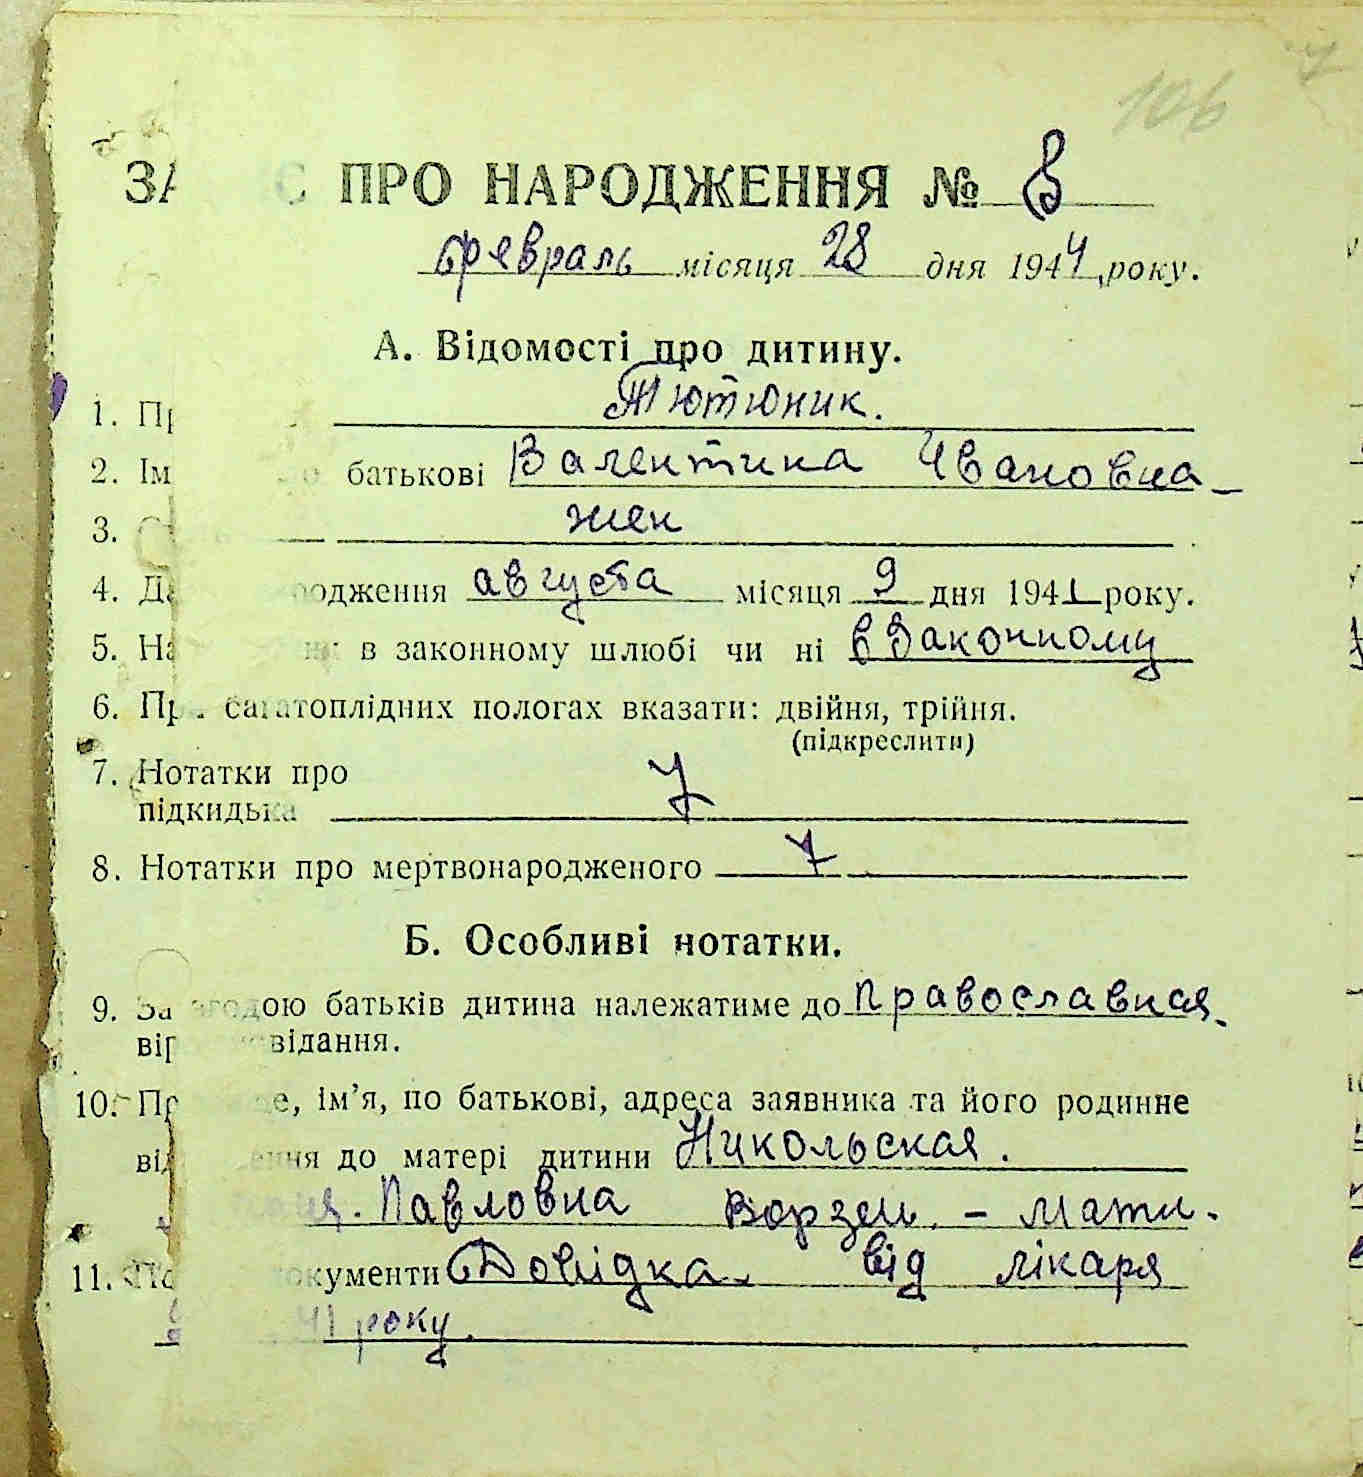 106
ПРО НАРОДЖЕННЯ № 8
февраль місяця 28 дня 1944 року.
А. Відомості про дитину.
1. Тютюник.
2. Ім батькові Валентина Ивановна
3. жен
4. августа місяця 9 дня 1941 року.
5. в законному шлюбі чи ні в законному
6. багатоплідних пологах вказати: двійня, трійня.
(підкреслити)
7. Нотатки про
підкидька
8. Нотатки про мертвонародженого
Б. Особливі нотатки.
9. За згодою батьків дитина належатиме до Православная
10. ім’я, по батькові, адреса заявника та його родинне
до матері дитини Никольская.
Павловна Ворзель - мати.
11. документи Довідка від лікаря
41 року.